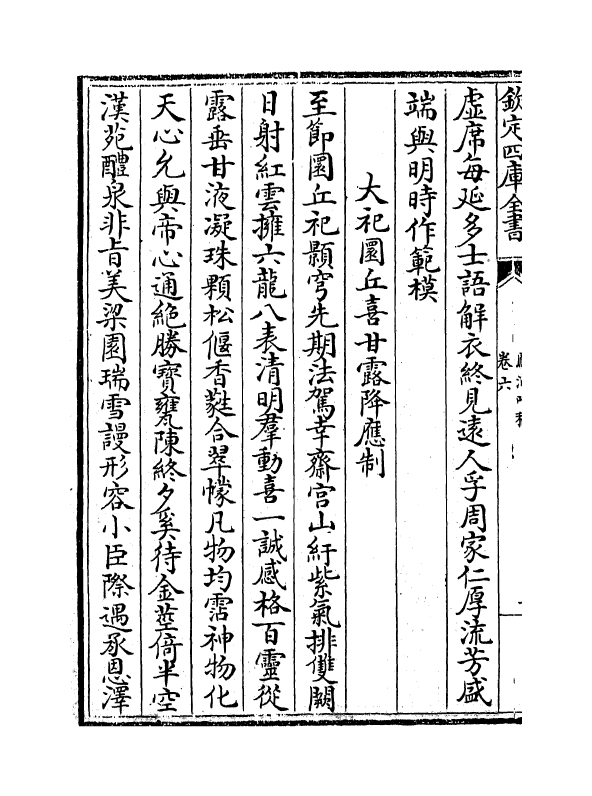 欽定四庫全書
卷六
虛席每延多士語解衣終見遠人孚周家仁厚流芳盛
端與明時作範模
大祀圜丘喜甘露降應制
至節圜丘祀顥穹先期法駕幸齋宫山紆紫氣排雙闕
日射紅雲擁六龍八表清明羣動喜一誠感格百靈從
露垂甘液凝珠顆松偃香蕤合翠幪凡物均霑神物化
天心允與帝心通絶勝寶甕陳終夕奚待金莖倚半空
漢苑醴泉非旨美梁園瑞雪謾形容小臣際遇承恩澤